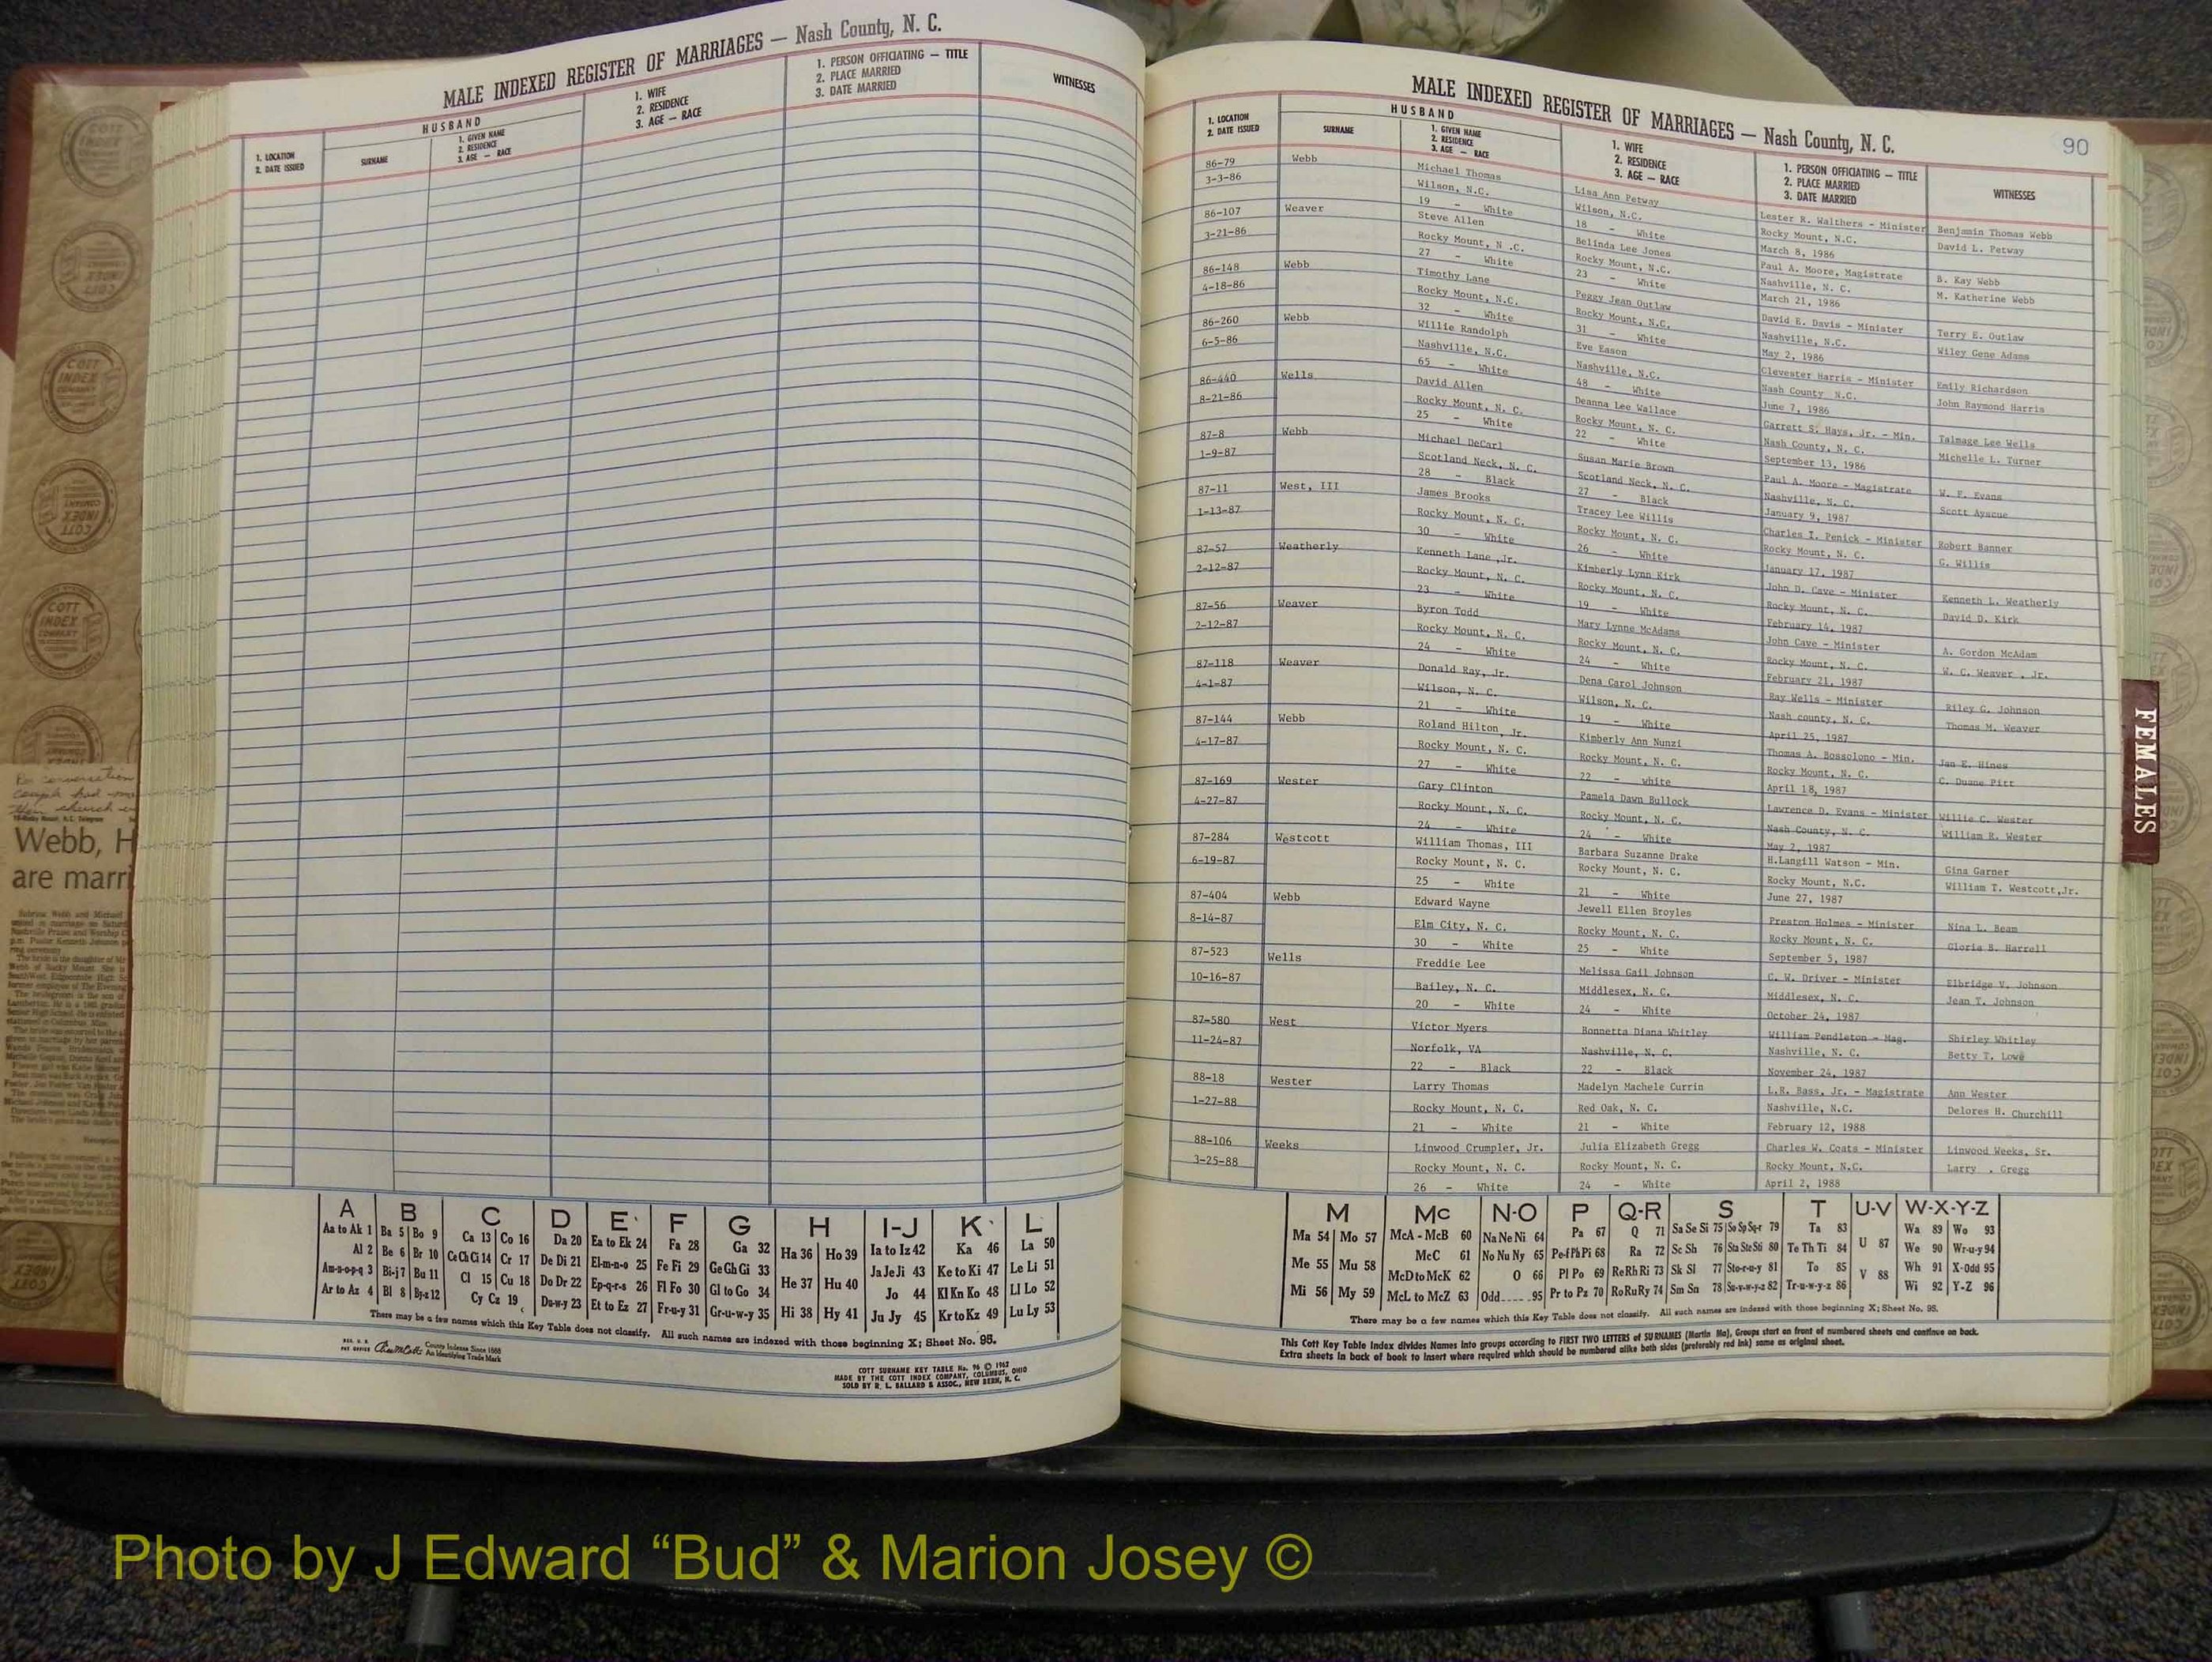 MALE INDEXED REGISTER OF MARRIAGES — Nash County, N. C.
1. LOCATION
2. DATE ISSUED
HUSBAND
SURNAME
1. GIVEN NAME
2. RESIDENCE
3. AGE — RACE
1. WIFE
2. RESIDENCE
3. AGE — RACE
1. PERSON OFFICIATING — TITLE
2. PLACE MARRIED
3. DATE MARRIED
WITNESSES
A B C D E F G H I-J K L
Aa to Ak 1 Ba 5 Bo 9 Ca 13 Co 16 Da 20 Ea to Ek 24 Fa 28 Ga 32 Ha 36 Ho 39 Ia to Iz 42 Ka 46 La 50
Al 2 Be 6 Br 10 Ce Ch Ci 14 Cr 17 De Di 21 El-m-n-o 25 Fe Fi 29 Ge Gh Gi 33 He 37 Hu 40 Ja Je Ji 43 Ke to Ki 47 Le Li 51
Am-n-o-p-q 3 Bi-j 7 Bu 11 Cl 15 Cu 18 Do Dr 22 Ep-q-r-s 26 Fl Fo 30 Gl to Go 34 Hi 38 Hy 41 Jo 44 Kl Kn Ko 48 Ll Lo 52
Ar to Az 4 Bl 8 By-z 12 Cy Cz 19 Du-w-y 23 Et to Ez 27 Fr-u-y 31 Gr-u-w-y 35 Ju Jy 45 Kr to Kz 49 Lu Ly 53
There may be a few names which this Key Table does not classify. All such names are indexed with those beginning X; Sheet No. 95.
County Indexes Since 1888
An Identifying Trade Mark
COTT SURNAME KEY TABLE No. 96 © 1962
MADE BY THE COTT INDEX COMPANY, COLUMBUS, OHIO
SOLD BY R. L. BALLARD & ASSOC., NEW BERN, N. C.
MALE INDEXED REGISTER OF MARRIAGES — Nash County, N. C.
90
1. LOCATION
2. DATE ISSUED
HUSBAND
SURNAME
1. GIVEN NAME
2. RESIDENCE
3. AGE — RACE
1. WIFE
2. RESIDENCE
3. AGE — RACE
1. PERSON OFFICIATING — TITLE
2. PLACE MARRIED
3. DATE MARRIED
WITNESSES
86-79 Webb Michael Thomas Lisa Ann Petway Lester R. Walthers - Minister Benjamin Thomas Webb
3-3-86 Wilson, N.C. Wilson, N.C. Rocky Mount, N.C. David L. Petway
19 - White 18 - White March 8, 1986
86-107 Weaver Steve Allen Belinda Lee Jones Paul A. Moore, Magistrate B. Kay Webb
3-21-86 Rocky Mount, N .C. Rocky Mount, N.C. Nashville, N. C. M. Katherine Webb
27 - White 23 - White March 21, 1986
86-148 Webb Timothy Lane Peggy Jean Outlaw David E. Davis - Minister Terry E. Outlaw
4-18-86 Rocky Mount, N.C. Rocky Mount, N.C. Nashville, N.C. Wiley Gene Adams
32 - White 31 - White May 2, 1986
86-260 Webb Willie Randolph Eve Eason Clevester Harris - Minister Emily Richardson
6-5-86 Nashville, N.C. Nashville, N.C. Nash County N.C. John Raymond Harris
65 - White 48 - White June 7, 1986
86-440 Wells David Allen Deanna Lee Wallace Garrett S. Hays, Jr. - Min. Talmage Lee Wells
8-21-86 Rocky Mount, N. C. Rocky Mount, N. C. Nash County, N. C. Michelle L. Turner
25 - White 22 - White September 13, 1986
87-8 Webb Michael DeCarl Susan Marie Brown Paul A. Moore - Magistrate W. F. Evans
1-9-87 Scotland Neck, N. C. Scotland Neck, N. C. Nashville, N. C. Scott Ayscue
28 - Black 27 - Black January 9, 1987
87-11 West, III James Brooks Tracey Lee Willis Charles I. Penick - Minister Robert Banner
1-13-87 Rocky Mount, N. C. Rocky Mount, N. C. Rocky Mount, N. C. G. Willis
30 - White 26 - White January 17, 1987
87-57 Weatherly Kenneth Lane ,Jr. Kimberly Lynn Kirk John D. Cave - Minister Kenneth L. Weatherly
2-12-87 Rocky Mount, N. C. Rocky Mount, N. C. Rocky Mount, N. C. David D. Kirk
23 - White 19 - White February 14, 1987
87-56 Weaver Byron Todd Mary Lynne McAdams John Cave - Minister A. Gordon McAdam
2-12-87 Rocky Mount, N. C. Rocky Mount, N. C. Rocky Mount, N. C. W. C. Weaver , Jr.
24 - White 24 - White February 21, 1987
87-118 Weaver Donald Ray, Jr. Dena Carol Johnson Ray Wells - Minister Riley G. Johnson
4-1-87 Wilson, N. C. Wilson, N. C. Nash county, N. C. Thomas M. Weaver
21 - White 19 - White April 25, 1987
87-144 Webb Roland Hilton, Jr. Kimberly Ann Nunzi Thomas A. Bossolono - Min. Jan E. Hines
4-17-87 Rocky Mount, N. C. Rocky Mount, N. C. Rocky Mount, N. C. C. Duane Pitt
27 - White 22 - white April 18, 1987
87-169 Wester Gary Clinton Pamela Dawn Bullock Lawrence D. Evans - Minister Willie C. Wester
4-27-87 Rocky Mount, N. C. Rocky Mount, N. C. Nash County, N. C. William R. Wester
24 - White 24 - White May 2, 1987
87-284 Westcott William Thomas, III Barbara Suzanne Drake H.Langill Watson - Min. Gina Garner
6-19-87 Rocky Mount, N. C. Rocky Mount, N. C. Rocky Mount, N.C. William T. Westcott,Jr.
25 - White 21 - White June 27, 1987
87-404 Webb Edward Wayne Jewell Ellen Broyles Preston Holmes - Minister Nina L. Beam
8-14-87 Elm City, N. C. Rocky Mount, N. C. Rocky Mount, N. C. Gloria B. Harrell
30 - White 25 - White September 5, 1987
87-523 Wells Freddie Lee Melissa Gail Johnson C. W. Driver - Minister Elbridge V. Johnson
10-16-87 Bailey, N. C. Middlesex, N. C. Middlesex, N. C. Jean T. Johnson
20 - White 24 - White October 24, 1987
87-580 West Victor Myers Bonnetta Diana Whitley William Pendleton - Mag. Shirley Whitley
11-24-87 Norfolk, VA Nashville, N. C. Nashville, N. C. Betty T. Lowe
22 - Black 22 - Black November 24, 1987
88-18 Wester Larry Thomas Madelyn Machele Currin L.R. Bass, Jr. - Magistrate Ann Wester
1-27-88 Rocky Mount, N. C. Red Oak, N. C. Nashville, N.C. Delores H. Churchill
21 - White 21 - White February 12, 1988
88-106 Weeks Linwood Crumpler, Jr. Julia Elizabeth Gregg Charles W. Coats - Minister Linwood Weeks, Sr.
3-25-88 Rocky Mount, N. C. Rocky Mount, N. C. Rocky Mount, N.C. Larry . Gregg
26 - White 24 - White April 2, 1988
M Mc N-O P Q-R S T U-V W-X-Y-Z
Ma 54 Mo 57 McA - McB 60 Na Ne Ni 64 Pa 67 Q 71 Sa Se Si 75 So Sp Sq-r 79 Ta 83 U 87 Wa 89 Wo 93
Me 55 Mu 58 McC 61 No Nu Ny 65 Pe-f Ph Pi 68 Ra 72 Sc Sh 76 Sta Ste Sti 80 Te Th Ti 84 V 88 We 90 Wr-u-y 94
Mi 56 My 59 McD to McK 62 O 66 Pl Po 69 Re Rh Ri 73 Sk Sl 77 Sto-r-u-y 81 To 85 Wh 91 X-Odd 95
McL to McZ 63 Odd 95 Pr to Pz 70 Ro Ru Ry 74 Sm Sn 78 Su-v-w-y-z 82 Tr-u-w-y-z 86 Wi 92 Y-Z 96
There may be a few names which this Key Table does not classify. All such names are indexed with those beginning X; Sheet No. 95.
This Cott Key Table Index divides Names into groups according to FIRST TWO LETTERS of SURNAMES (Martin Ma), Groups start on front of numbered sheets and continue on back.
Extra sheets in back of book to insert where required which should be numbered alike both sides (preferably red ink) same as original sheet.
FEMALES
COTT
INDEX
COMPANY
Webb, H
are marri
Photo by J Edward “Bud” & Marion Josey ©